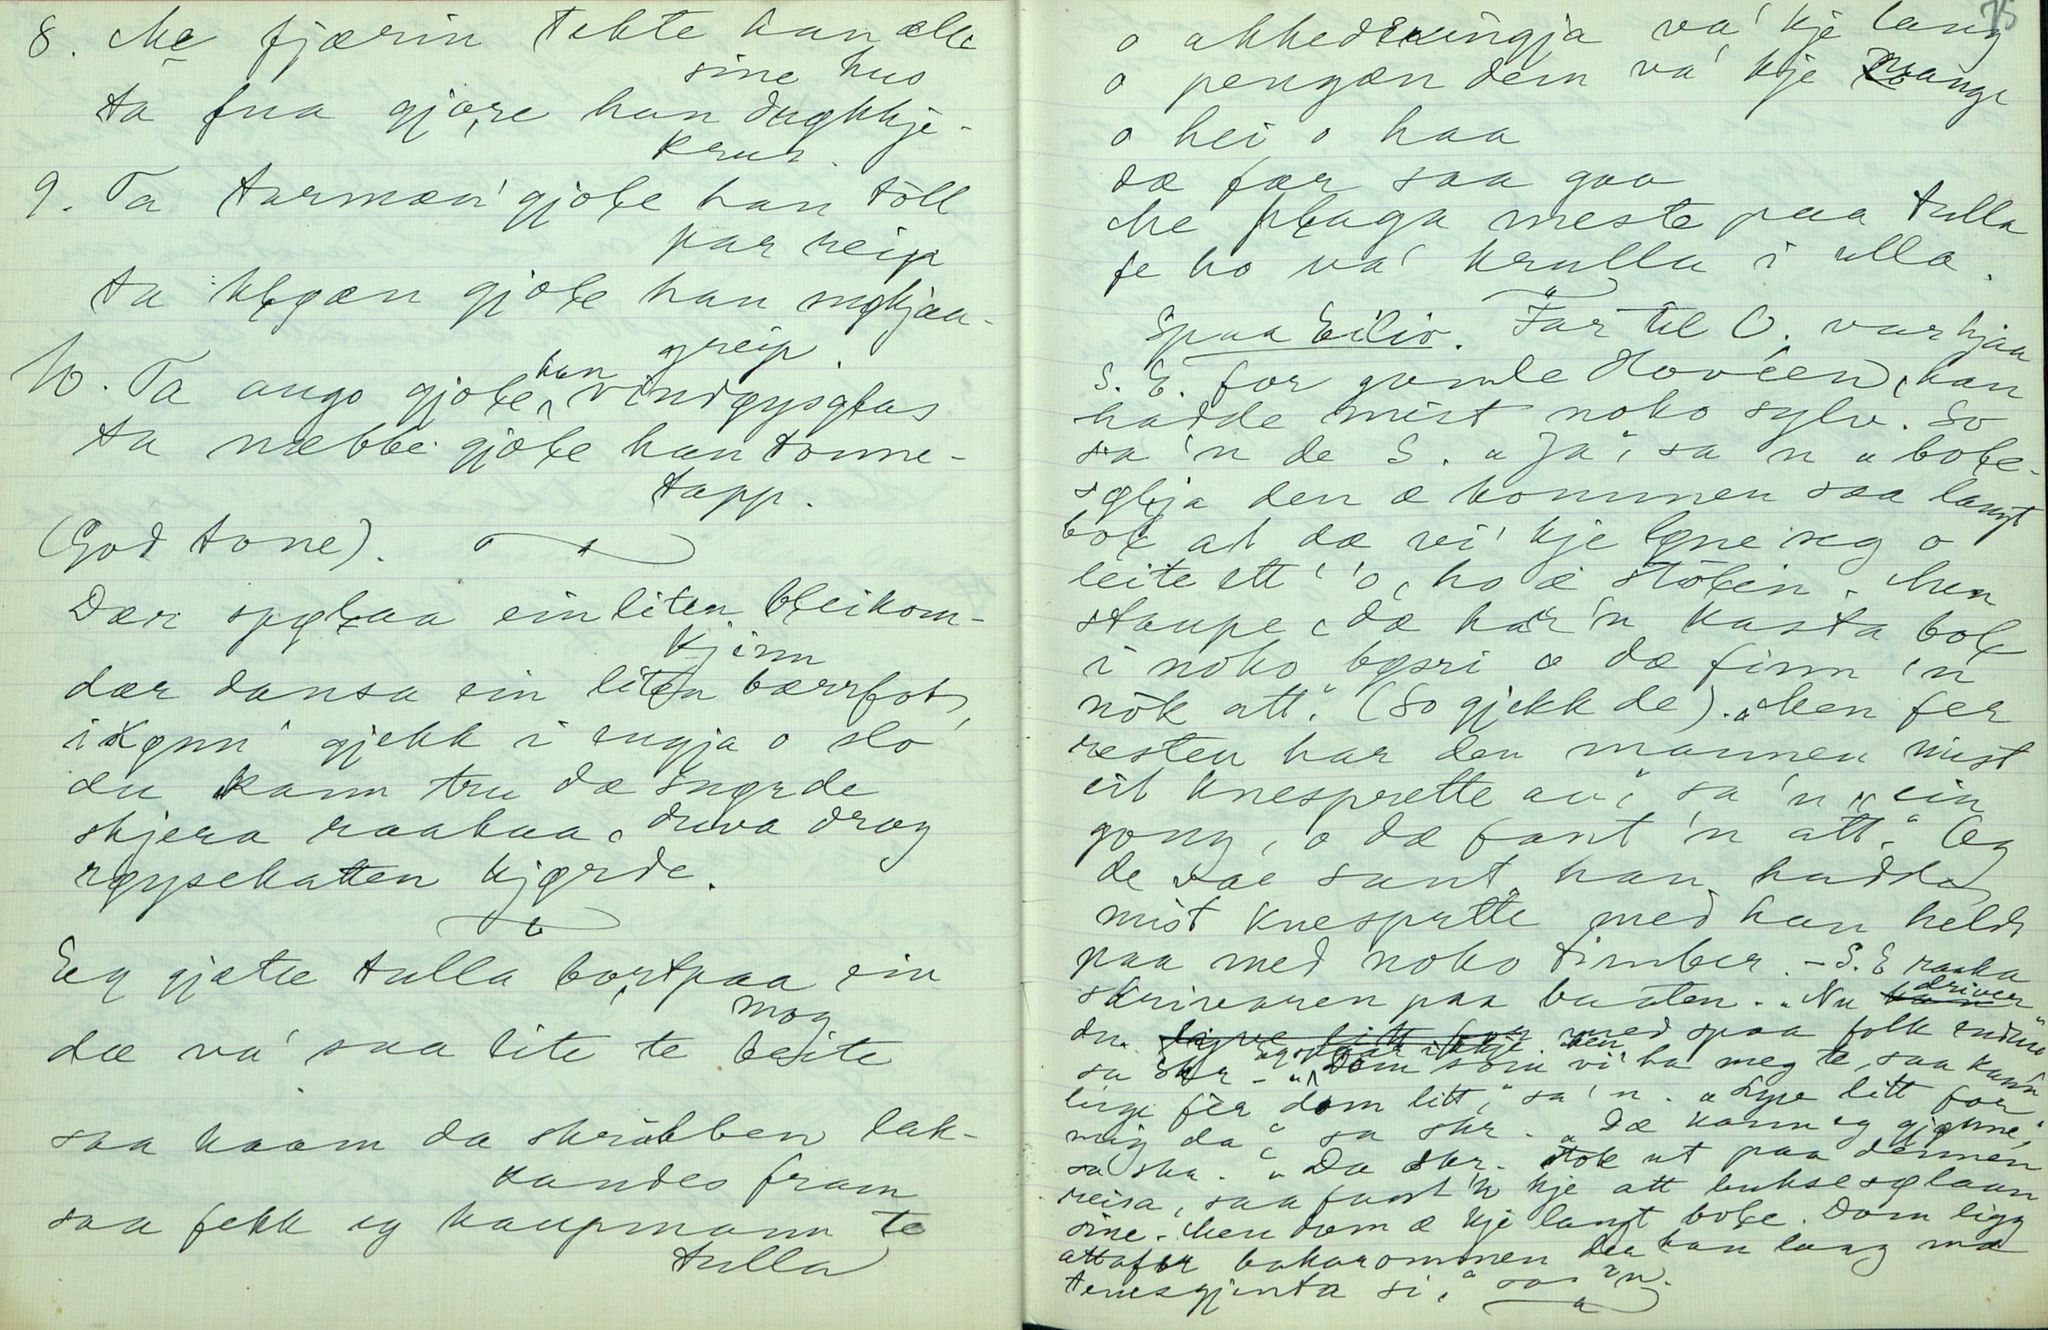 8. Me fjærin tekte han alle
sine hus
ta fua gjore han dugkkje-
krus.
9. Ta tarmæn' gjoƚe han töll
par reip
ta kƚoæn gjoƚe han møkjaa-
greip.
10. Ta augo gjoƚe han vindøysglas
ta næbbe gjoƚe han tonne-
tapp.
(God tone).
Dær spøƚaa ein liten bƚeikom-
kjinn
dær dansa ein liten bærrfot,
ikønn' gjekk i engja o slo
du kann tru dæ snørde
skjera raakaa, duva drog
røysekatten kjørde.

Eg gjætte tulla bortpaa ein
mog
dæ va' saa lite te beite
saa kaam da skrubben lak-
kandes fram
saa fekk eg kaupmann te
tulla
75
o akkederingja va' kje lang
o pengæn dem va' kje mange
o hei o haa
dæ fær saa gaa
Me pƚaga meste paa tulla
fe ho va' krulla i ulla.

Spaa Eiliv. Far til O. var hjaa
S. E. for gamle Hovéen, han
hadde mist noko sylv. So
sa 'n de S. "Ja", sa 'n "boƚe-
søƚja den æ kommen saa langt
boƚ at dæ vi' kje løne seg o
leite ett' 'o, ho æ stoƚin. Men
staupe, dæ har 'n kasta boƚ
i noko bøsri o dæ finn 'n
nok att." (So gjekk de). "Men fer
resten har den mannen mist
eit knesprette au", sa 'n "ein
gong, o dæ fant 'n att." Og
de var sant, han hadde
mist knesprette med han heldt
paa med noko timber. - S. E raaka
skrivaren paa baaten. "Nu driver
du med spaa folk endnu"
sa skr - "Dem som vi' ha meg te, saa kann
ljuge fer dom litt," sa 'n. "Lyv litt for
mig da", sa skr. "Dæ kann eg gjænne,"
sa ska. "Da skr. tok ut paa denne
reisa, saa fant 'n kje att buksesælaan
sine. Men dom æ kje langt boƚe. Dom ligg
attafer bakarommen der han laag mæ
tenesgjenta si," sa 'n.